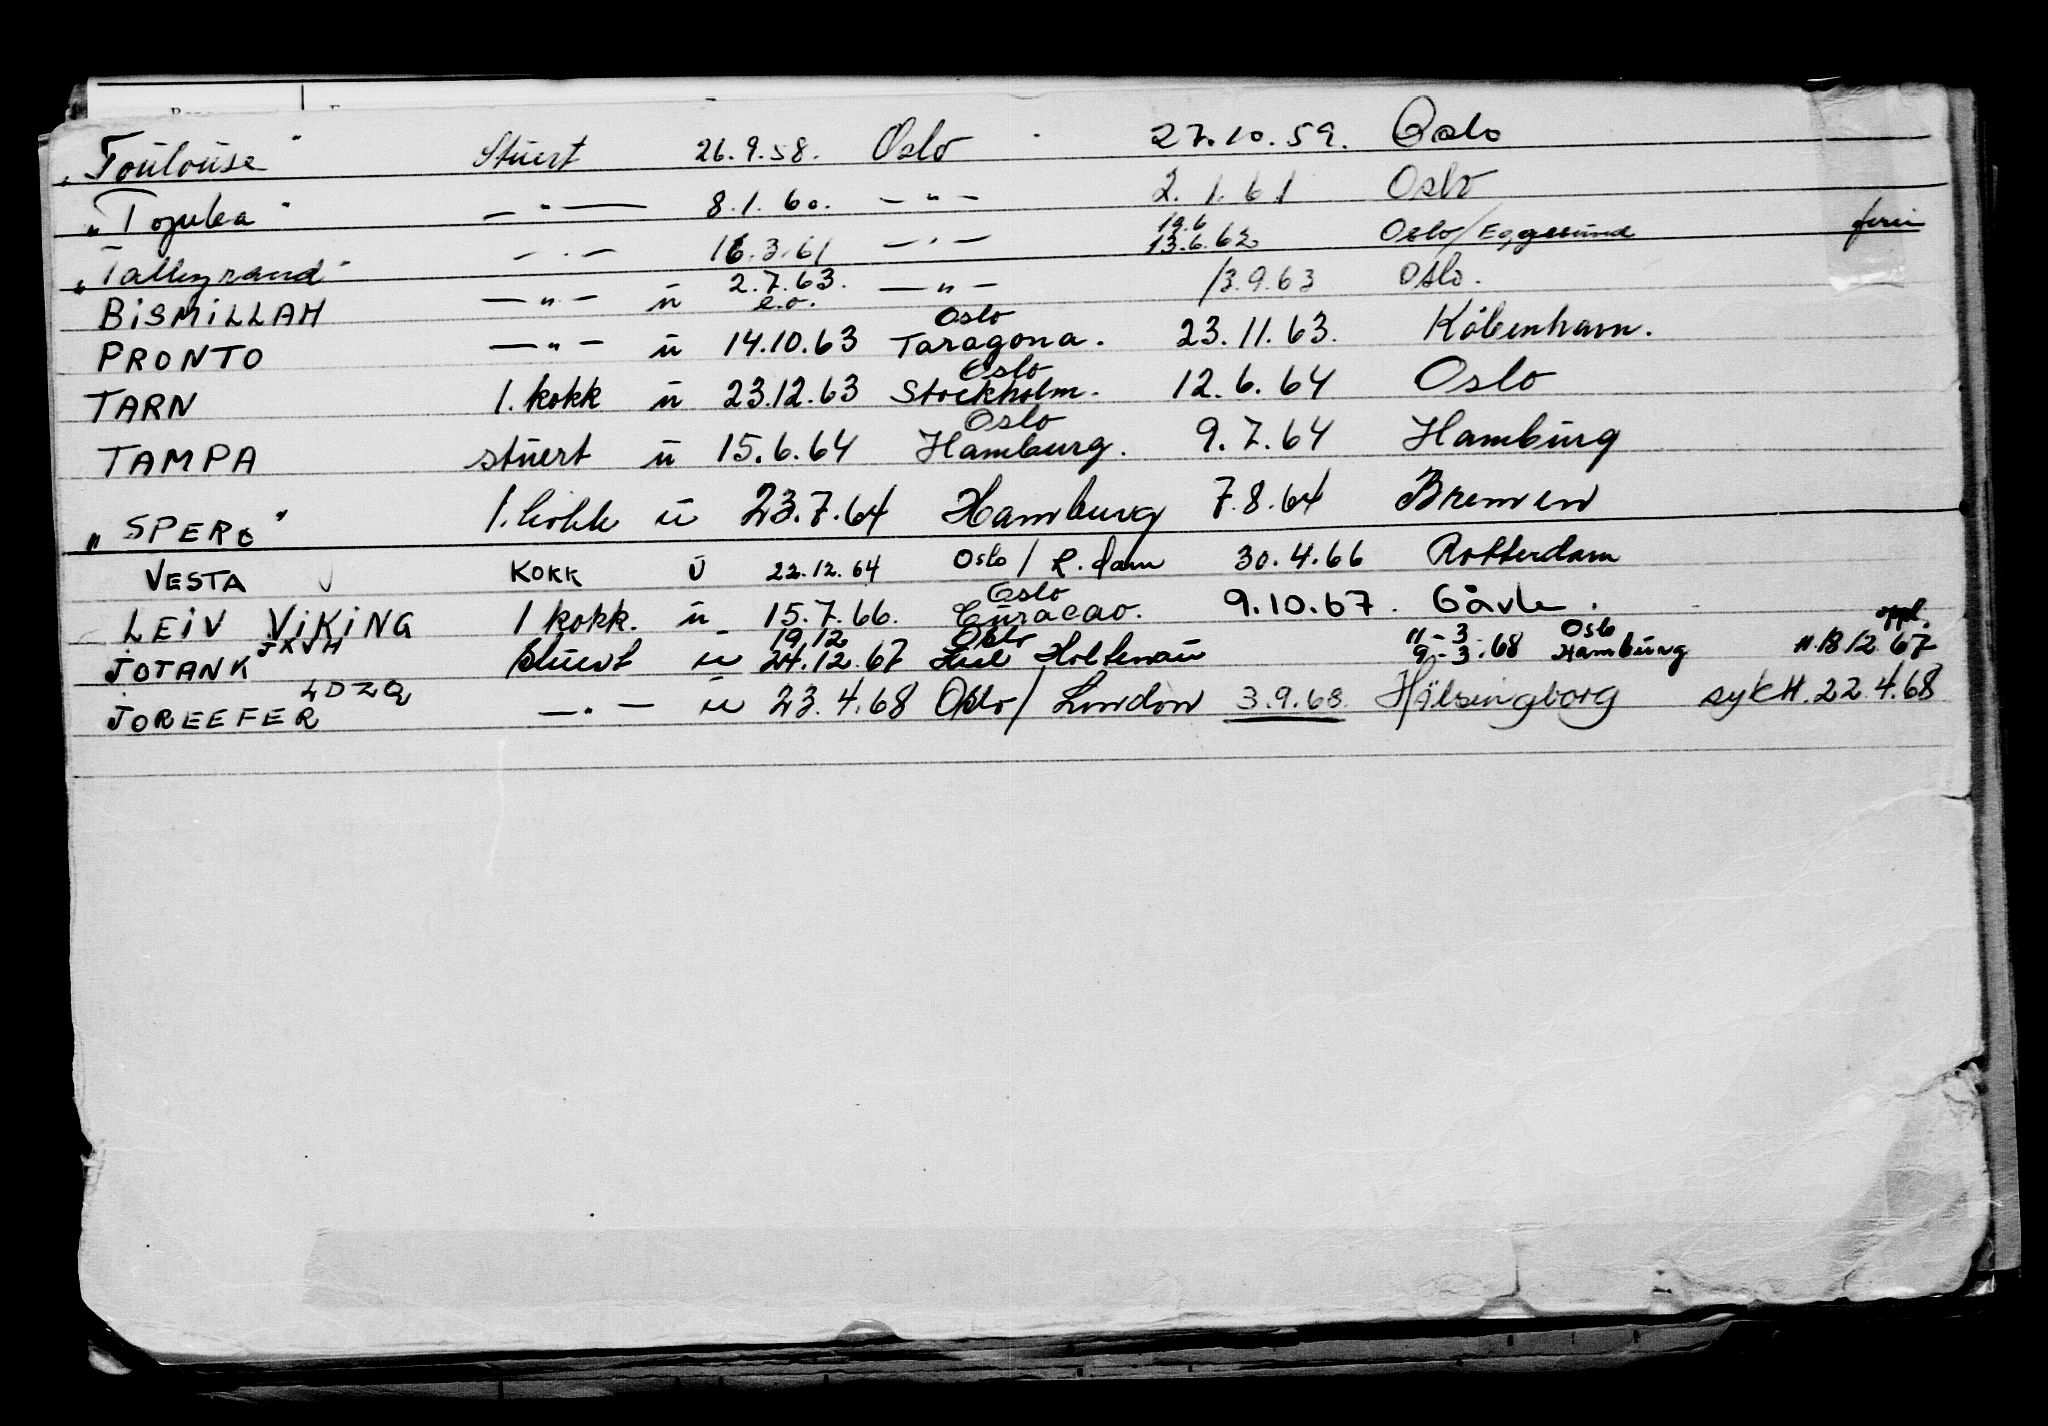 „Toulouse" Stuert 26.9.58. Oslo 27.10.59. Oslo
„Topeka" — " — 8.1.60. — " — 2.1.61 Oslo
19.6
„Talleyrand" — " — 16.3.61 — " — 13.6.62 Oslo/Eggesund ferie
BISMILLAH — " — ü 2.7.63. e.o. — " — 13.9.63 Oslo.
Oslo
PRONTO — " — ü 14.10.63 Taragona. 23.11.63. Köbenhavn.
Oslo
TARN 1. kokk ü 23.12.63 Stockholm. 12.6.64 Oslo
Oslo
TAMPA stuert ü 15.6.64 Hamburg. 9.7.64 Hamburg
„SPERO" 1. kokk ü 23.7.64 Hamburg 7.8.64 Bremen
VESTA KOKK U 22.12.64 Oslo / R.dam 30.4.66 Rotterdam
Oslo
LEIV VIKING 1 kokk. ü 15.7.66. Curacao. 9.10.67. Gävle.
JXJH 19.12 Oslo 11-3 Oslo oppl.
JOTANK stuert ü 24.12.67 Kiel Holtenau 9-3.68 Hamburg 11.12.67
LDZQ
JOREEFER — " — ü 23.4.68 Oslo/London 3.9.68 Hälsingborg sykH. 22.4.68